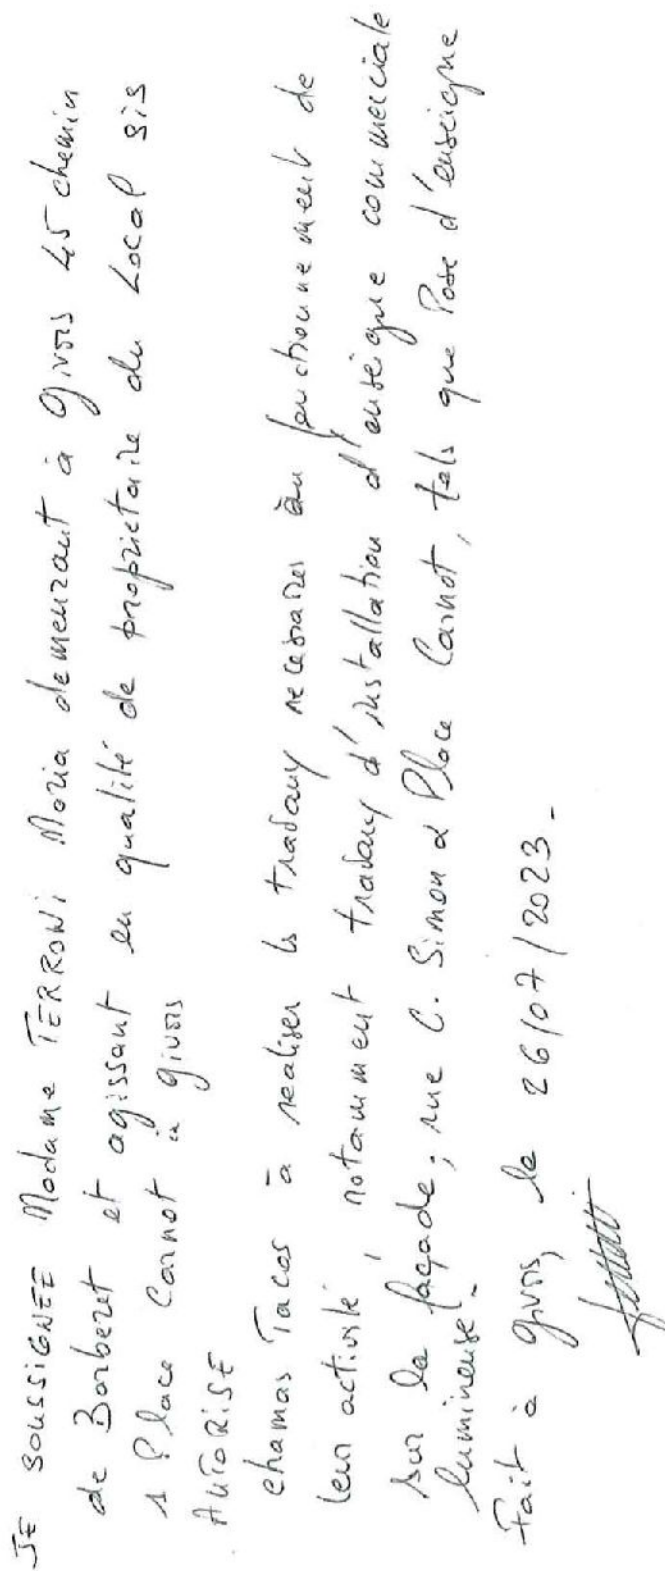 JE SOUSSIGNEE Madame TERRONI Maria demeurant à givors 45 chemin
de Barberet et agissant en qualité de propriétaire du Local sis
1 Place Carnot à givors
AUTORISE
chamas Tacos à realiser les travaux necessaires au fonctionnement de
leur activité, notamment travaux d'installation d'enseigne commerciale
sur la façade, rue C. Simon & Place Carnot, tels que Pose d'enseigne
lumineuse.
Fait à givors, le 26/07/2023-